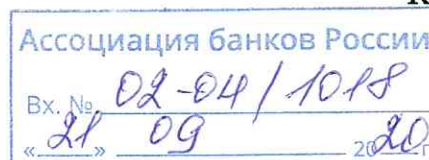 Ассоциация банков России
Вх. № 02-04/1018
«21» 09 2020 г